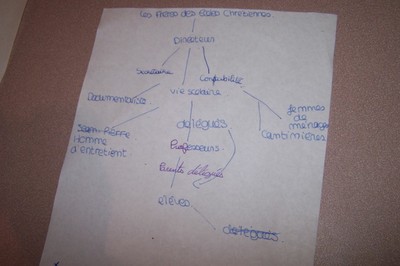 Les Frères des Ecoles Chrétiennes.
Directeur
Secrétaire
Comptabilité
Documentaliste
vie scolaire
femmes
de
ménage
Cantinières
délégués
Jean-Pierre
Homme
d'Entretient
Professeurs
Parents délégués
élèves
délégués